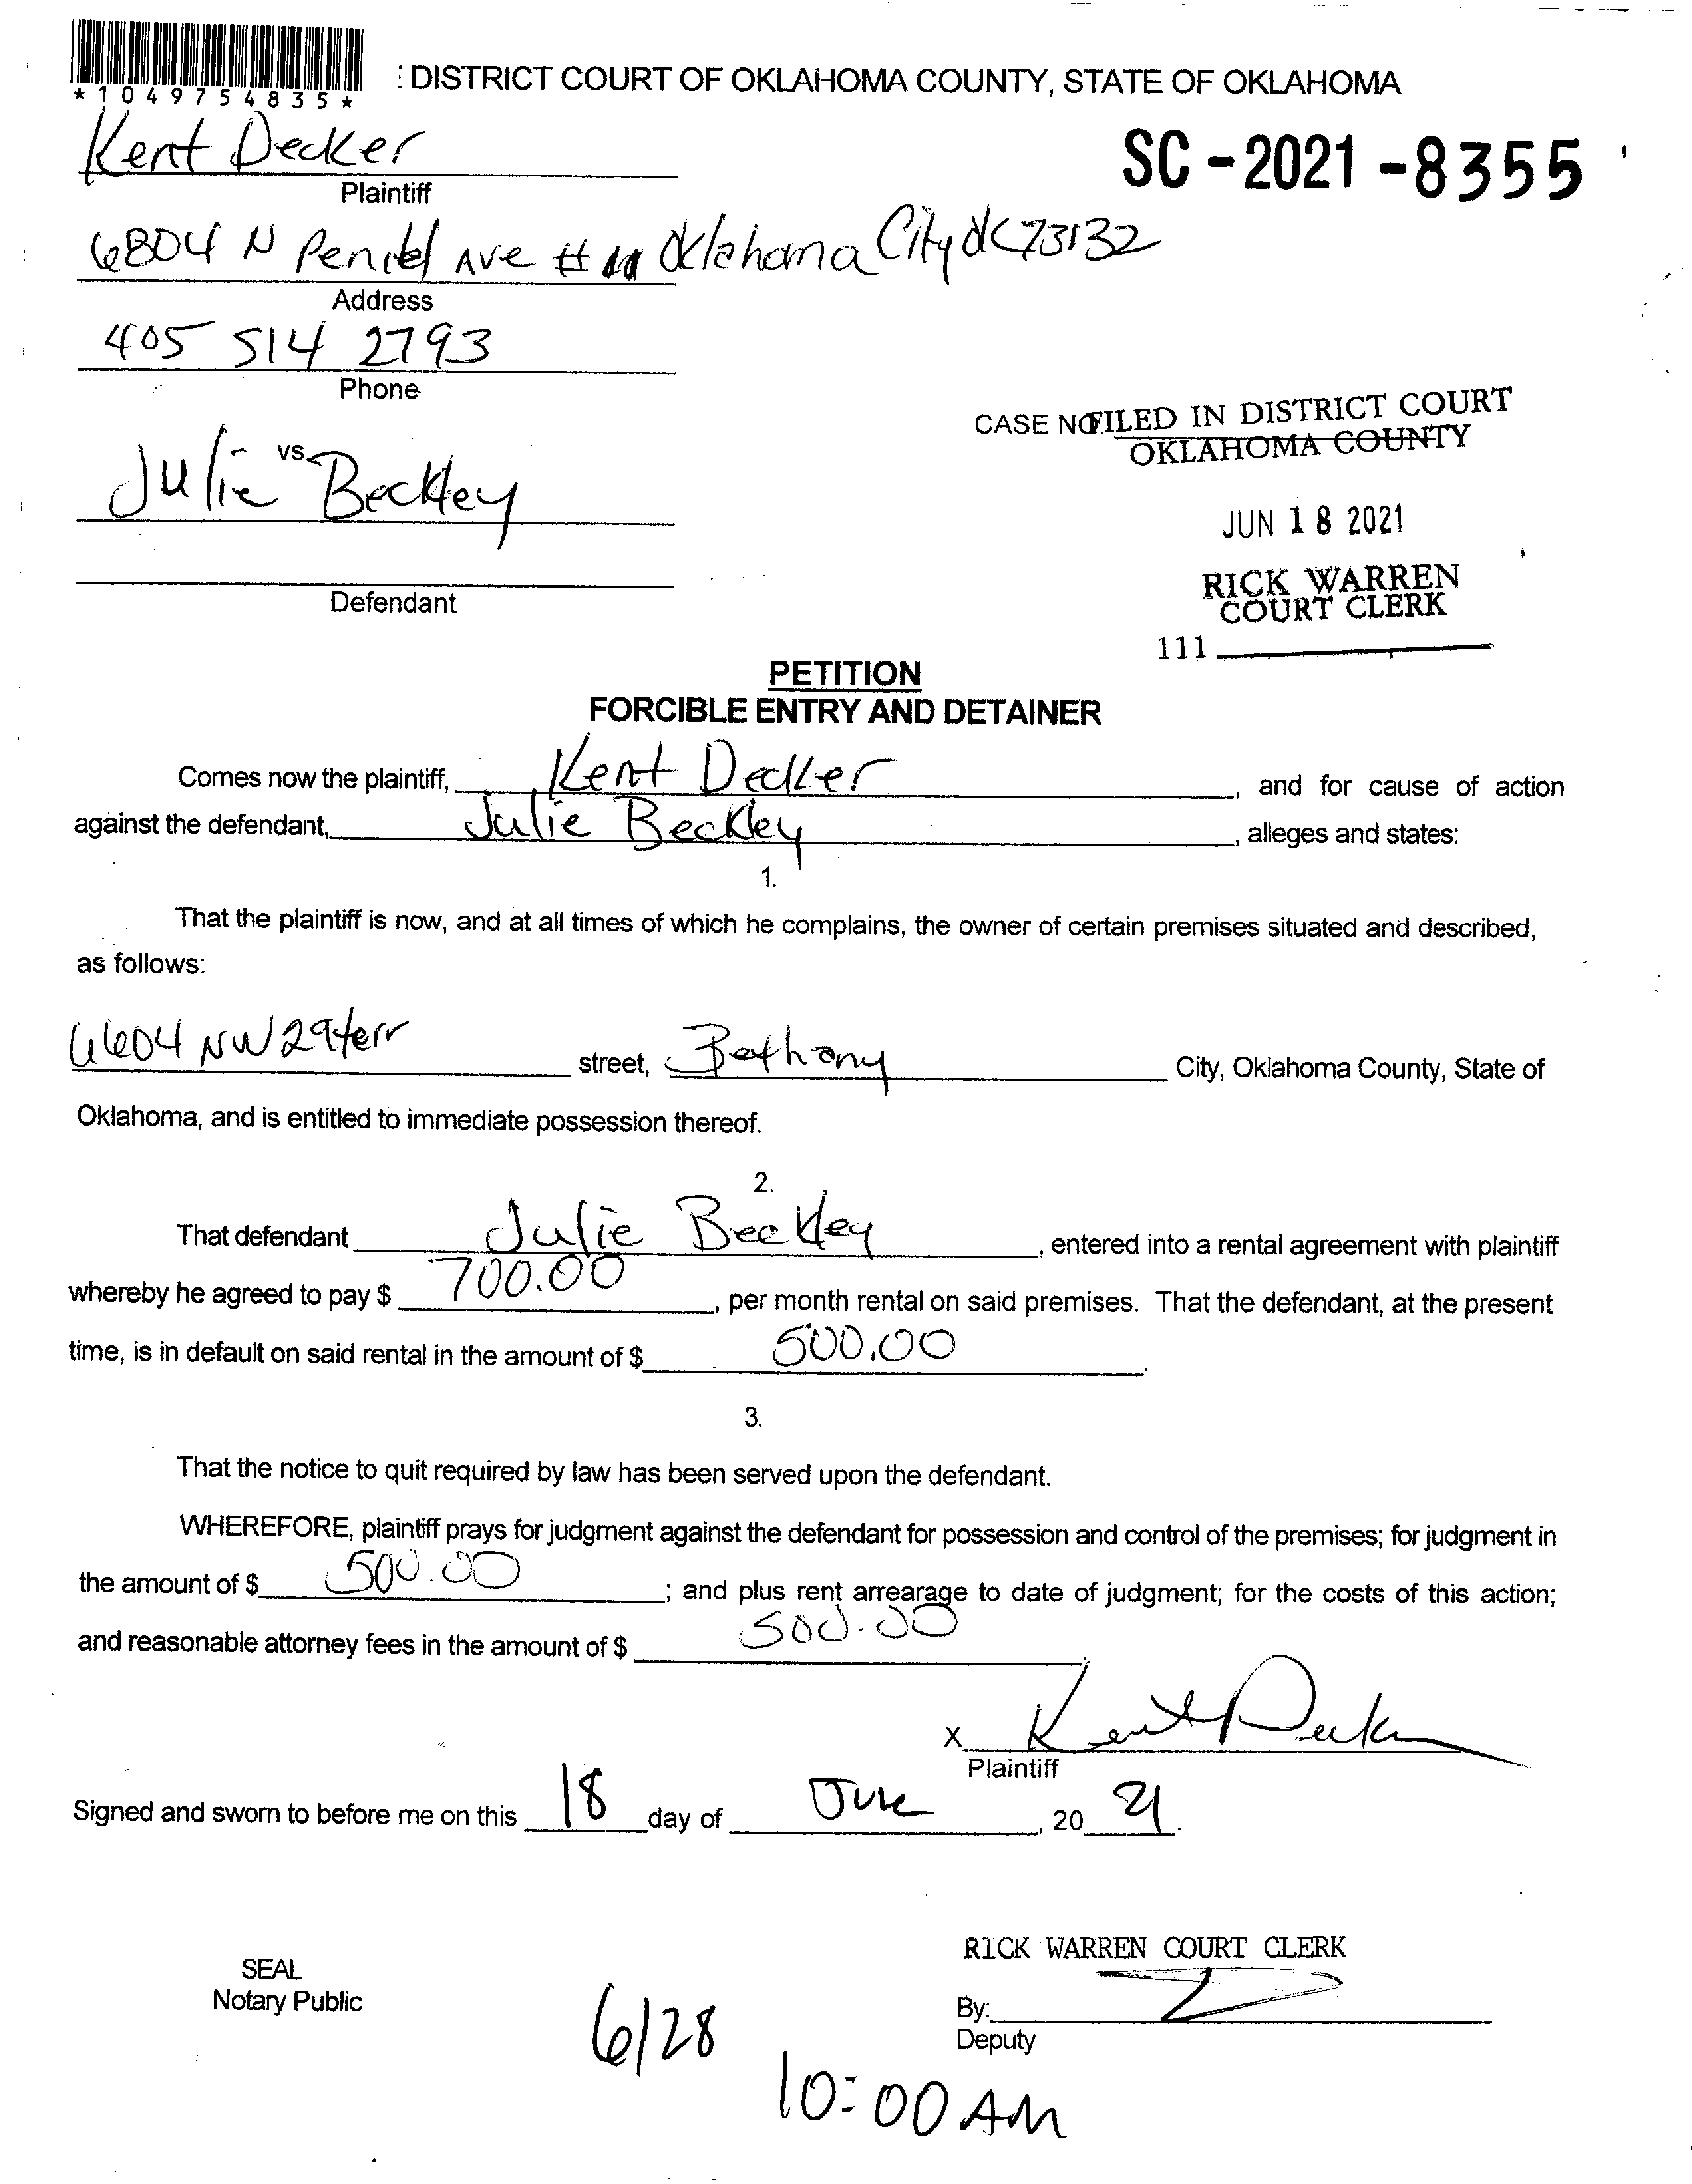 *1049754835*
: DISTRICT COURT OF OKLAHOMA COUNTY, STATE OF OKLAHOMA
Kent Decker
Plaintiff
SC - 2021 - 8355
6804 N Peniel Ave # Oklahoma City OK 73132
Address
405 514 2793
Phone
CASE NO FILED IN DISTRICT COURT
OKLAHOMA COUNTY
vs.
Julie Beckley
JUN 18 2021
RICK WARREN
COURT CLERK
Defendant
111
PETITION
FORCIBLE ENTRY AND DETAINER
Comes now the plaintiff, Kent Decker, and for cause of action
against the defendant, Julie Beckley, alleges and states:
1.
That the plaintiff is now, and at all times of which he complains, the owner of certain premises situated and described,
as follows:
6604 NW 29 terr street, Bethany City, Oklahoma County, State of
Oklahoma, and is entitled to immediate possession thereof.
2.
That defendant Julie Beckley, entered into a rental agreement with plaintiff
whereby he agreed to pay $ 700.00, per month rental on said premises. That the defendant, at the present
time, is in default on said rental in the amount of $ 500.00.
3.
That the notice to quit required by law has been served upon the defendant.
WHEREFORE, plaintiff prays for judgment against the defendant for possession and control of the premises; for judgment in
the amount of $ 500.00; and plus rent arrearage to date of judgment; for the costs of this action;
and reasonable attorney fees in the amount of $ 500.00
X Kent Decker
Plaintiff
Signed and sworn to before me on this 18 day of June, 20 21.
RICK WARREN COURT CLERK
SEAL
Notary Public
By:
Deputy
6/28
10:00 AM